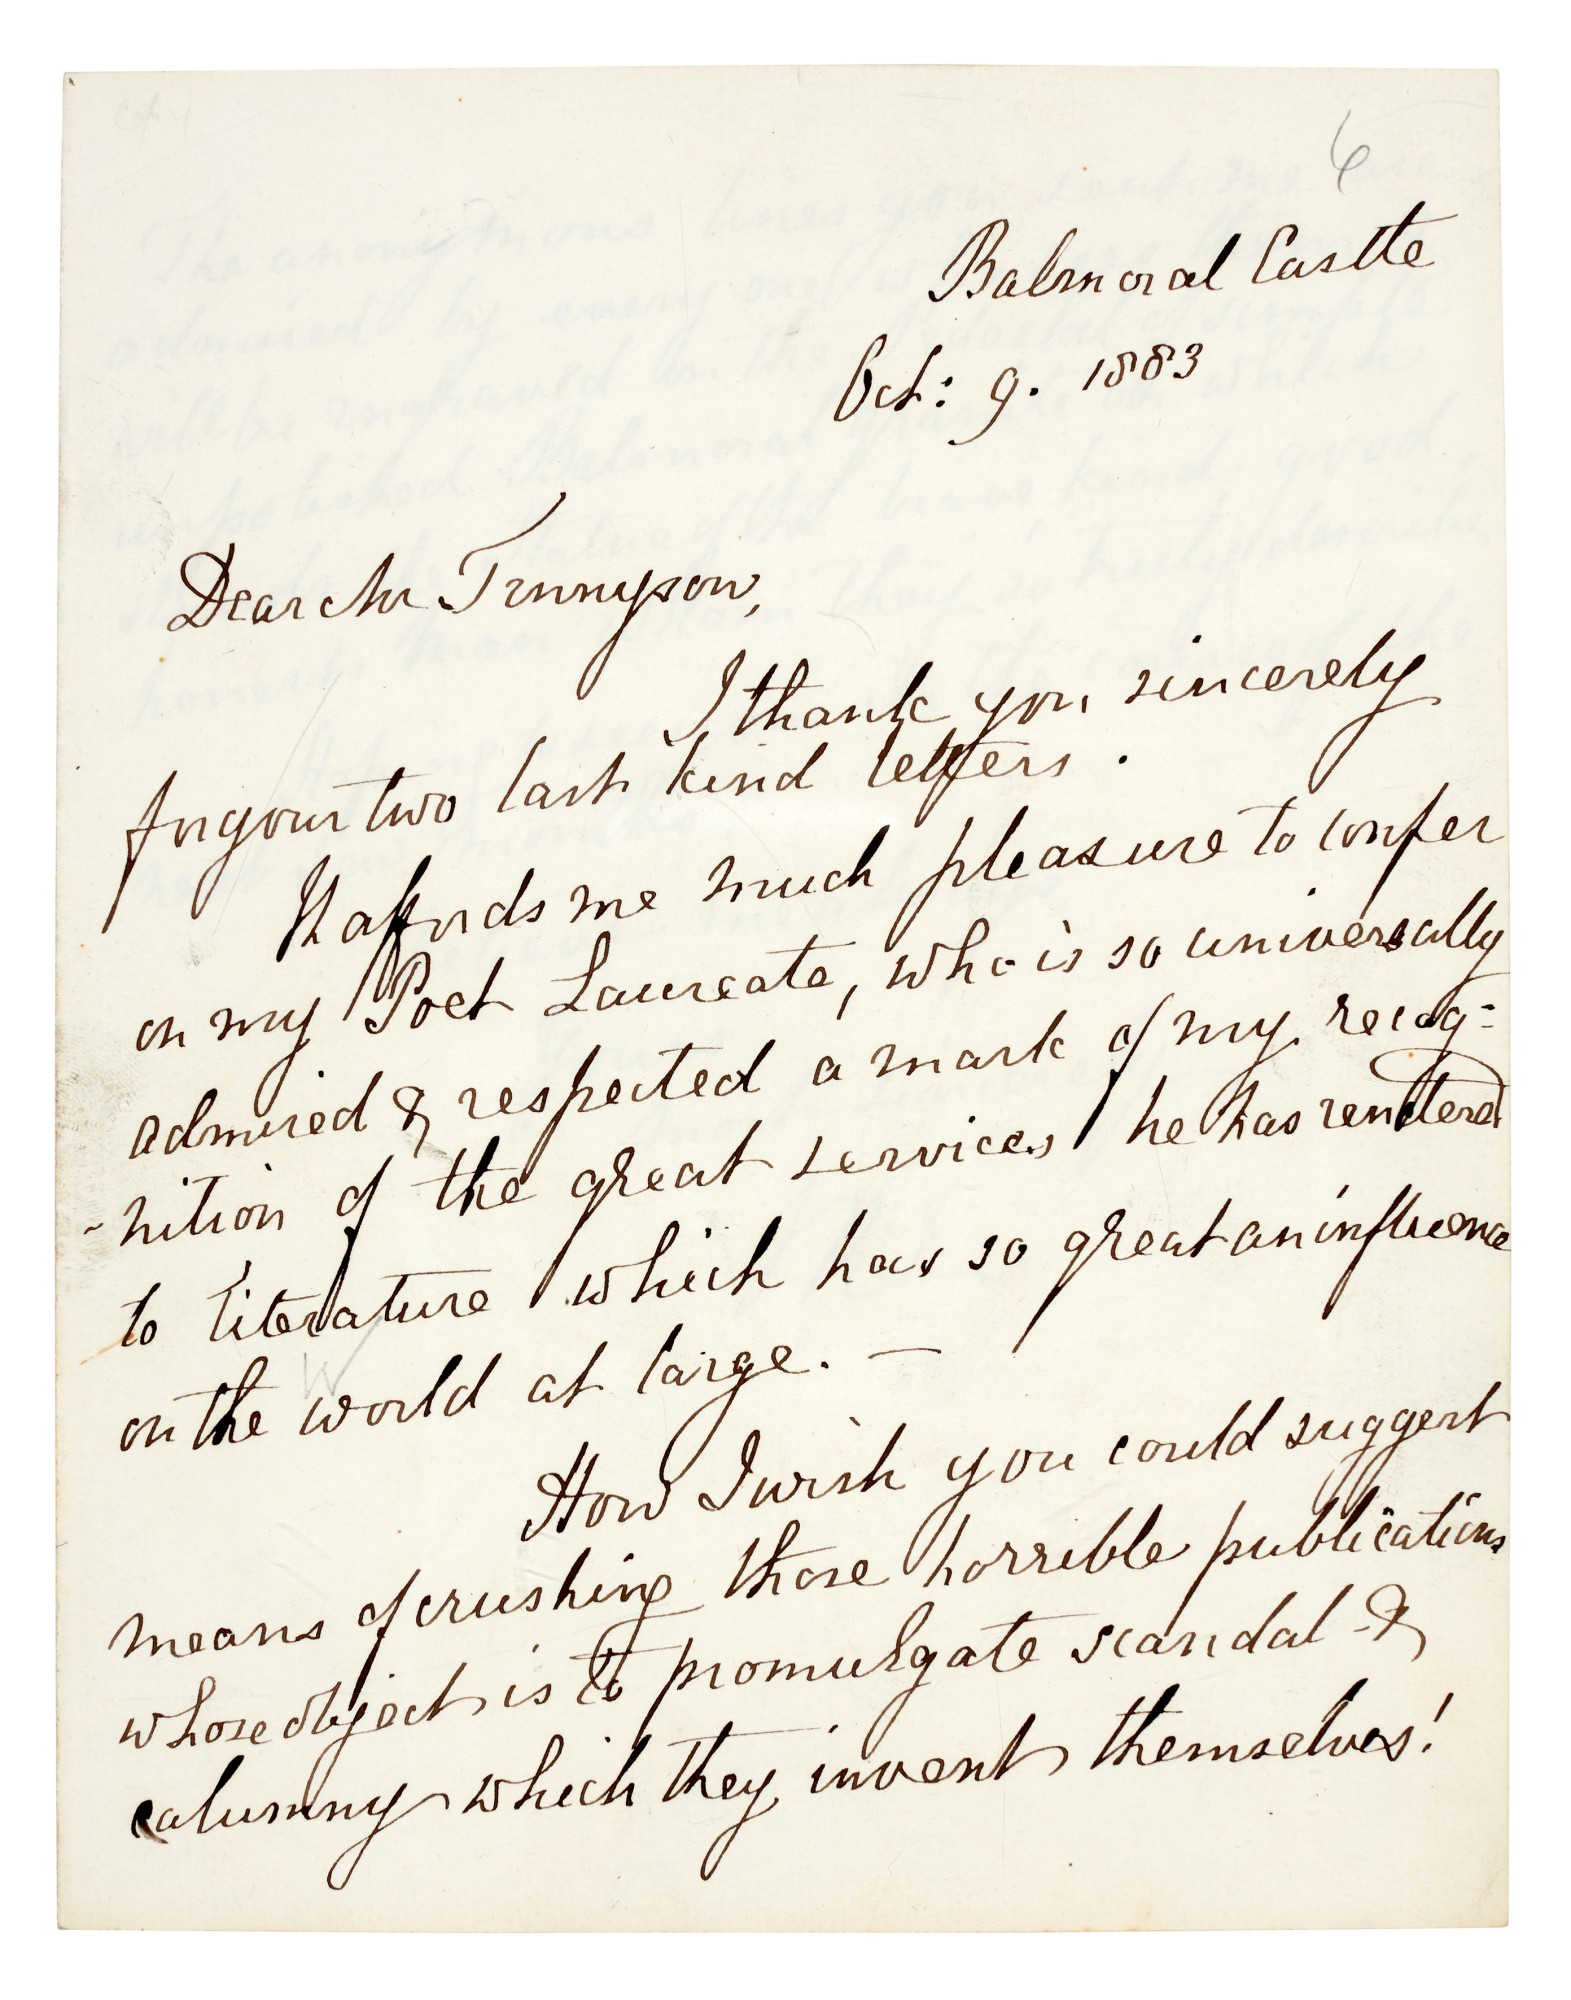 copy
6
Balmoral Castle
Oct: 9. 1883
Dear Mr Tennyson,
I thank you sincerely
for your two last kind letters.
It affords me much pleasure to confer
on my Poet Laureate, who is so universally
admired & respected a mark of my recog=
-nition of the great services he has rendered
to literature which has so great an influence
on the world at large. —
How I wish you could suggest
means of crushing those horrible publications
whose object is to promulgate scandal &
calumny which they invent themselves!